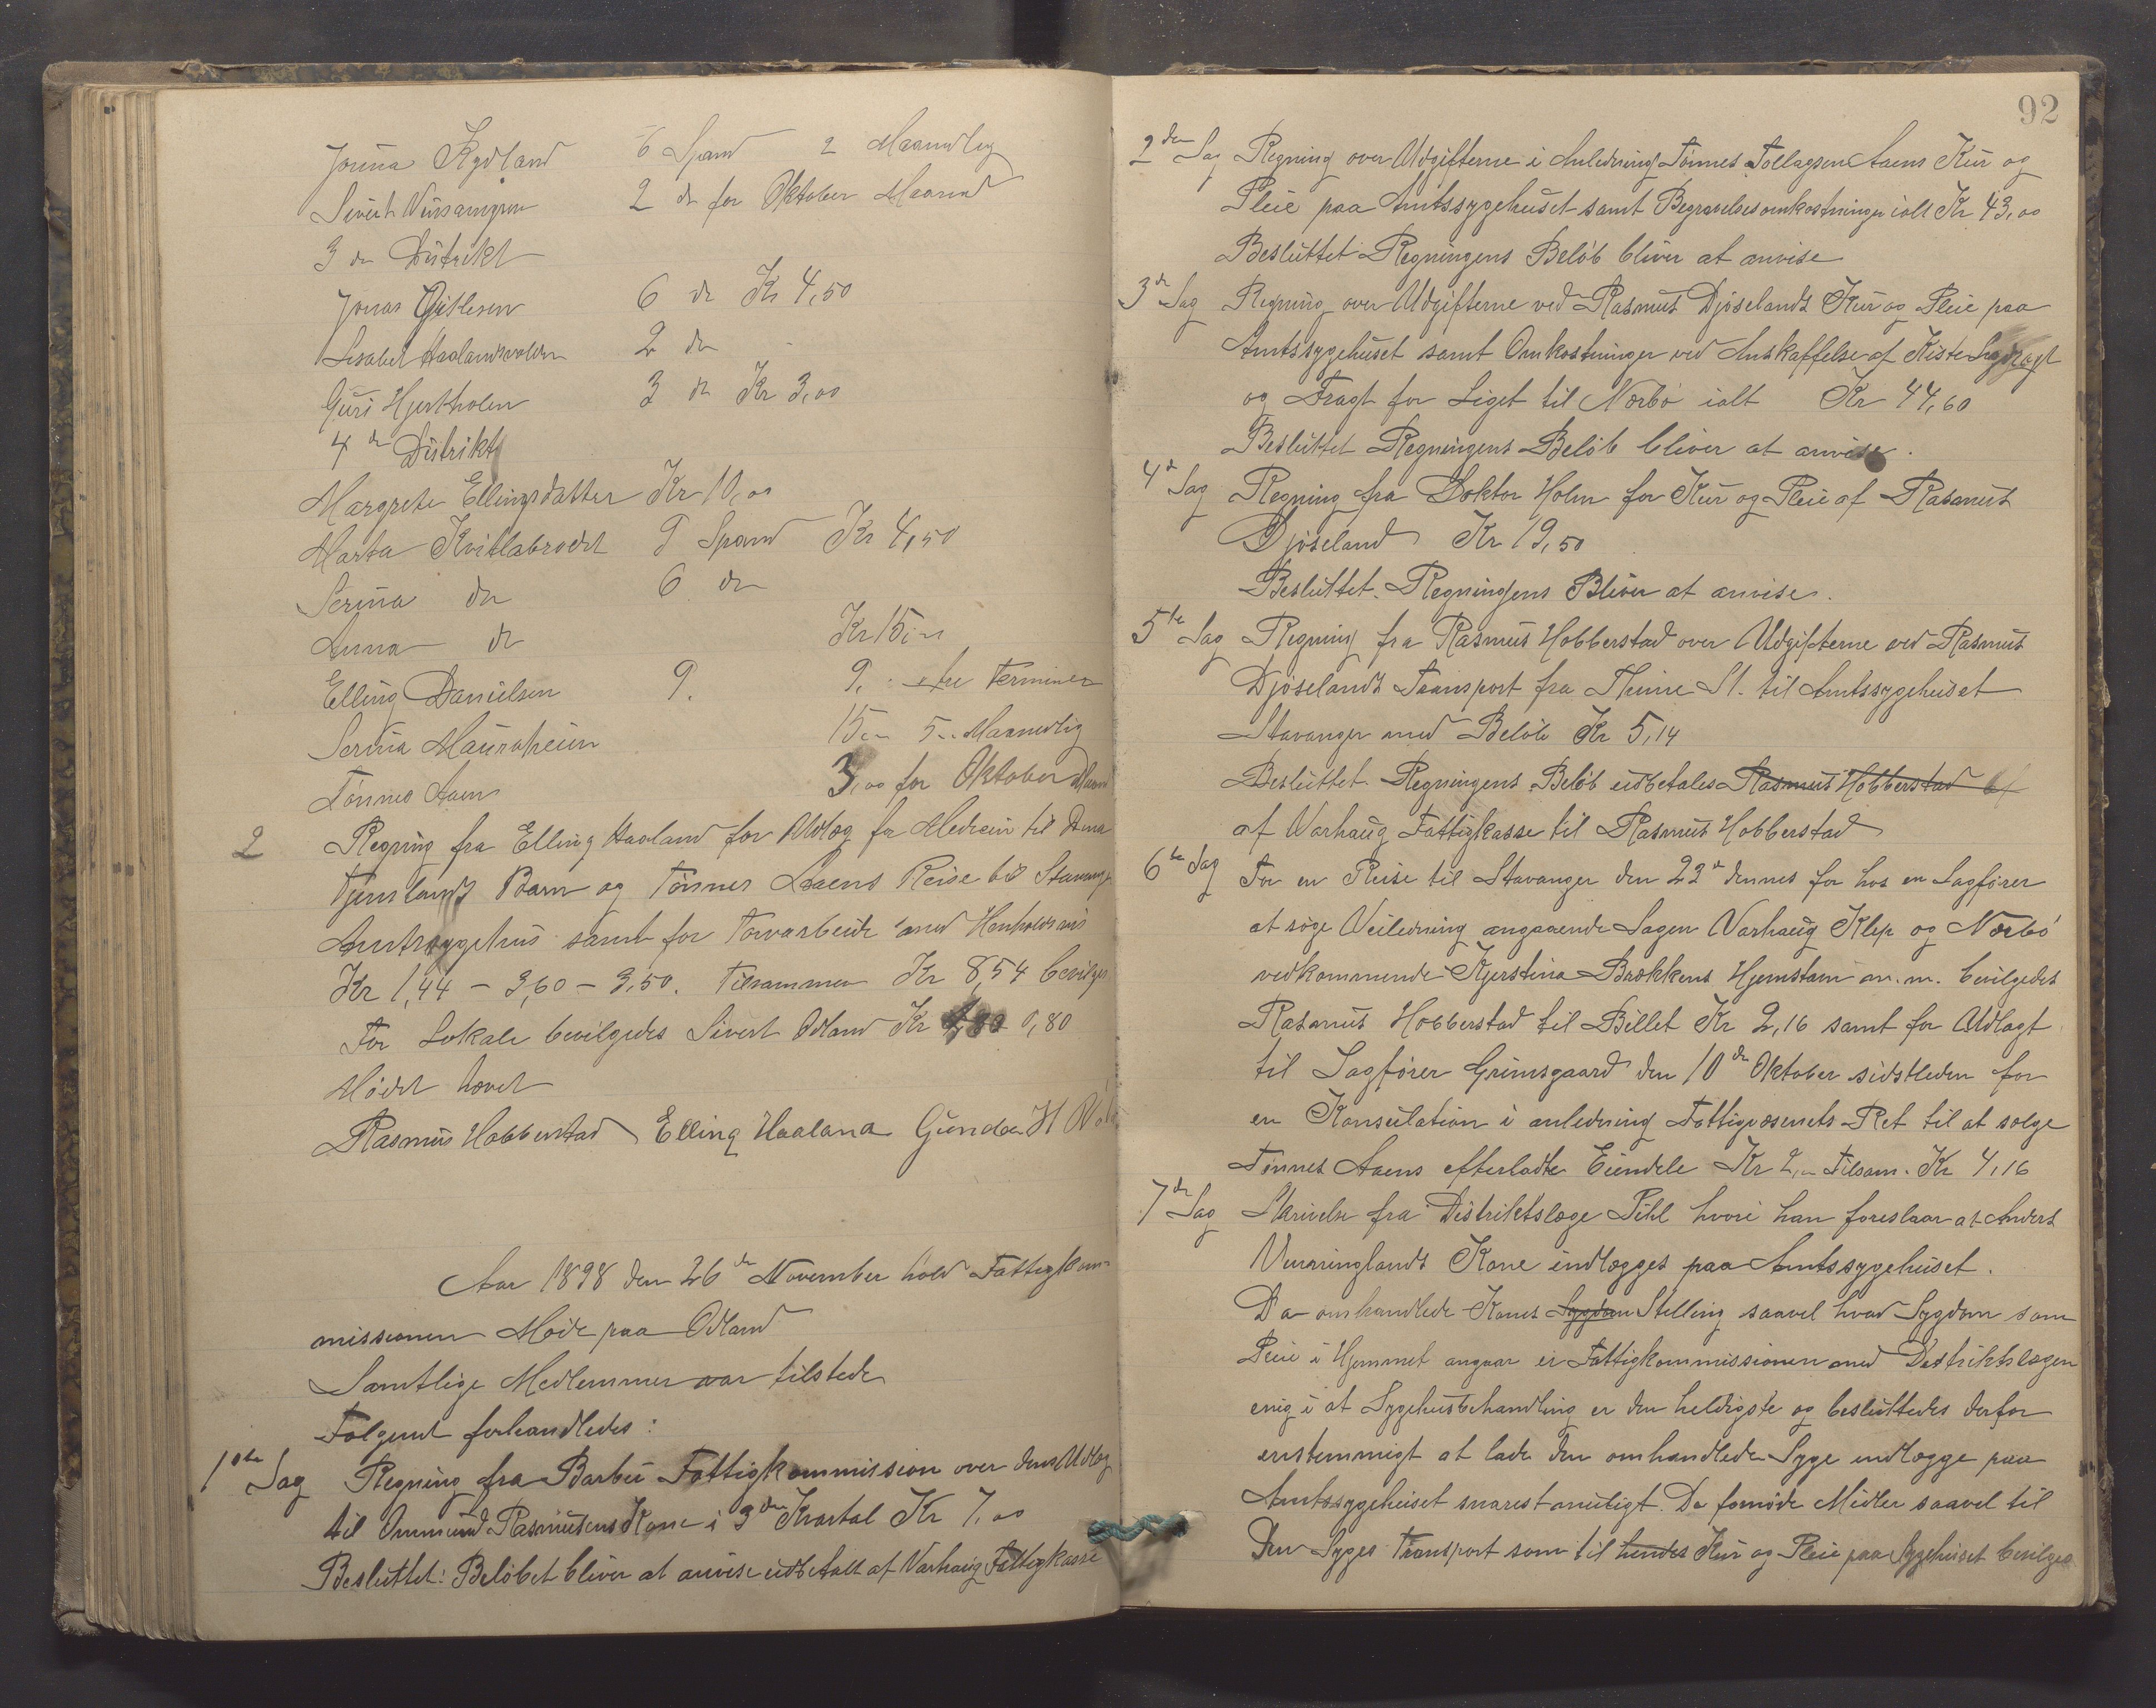 Jorina Rydland 6 Spand 2 Maanedlig
Sivert 2 do for Oktober Maaned
3die Distrikt
Jonas Gitlesen 6 do Kr 4,50
Lisabet Haalandsvolden 2 do -
Guri Hjertholen 3 do Kr 3,00
4de Distrikt
Margrete Ellingsdatter Kr 10,00
Marta Kvitlabrodet 9 Spand Kr 4,50
Serina do 6 do
Anna do Kr 15,-
Elling Danielsen 9. 9. Terminer
Serina Mauraheien 15,- 5,- Maanedlig
Tönnes Aaen 3,00 for Oktober Maaned
2 Regning fra Elling Haaland for Udlæg for Medicin til
Tjemslands Barn og Tönnes Aaens Reise til Stavanger
Amtssygehus samt for Torvarbeide med Henholdsvis
Kr 1,44 - 3,60 - 3,50. Tilsammen Kr 8,54 bevilges
For Lokale bevilgedes Sivert Odland Kr 0,80
Mödet hævet
Rasmus Hobberstad Elling Haaland Gunder H
Aar 1898 den 26de November holdt Fattigkom-
missionen Möde paa Odland
Samtlige Medlemmer var tilstede
Fölgende forhandledes:
1ste Sag Regning fra Barbu Fattigkommission over dens Udlæg
til Ommund Rasmusens Kone i 3die Kvartal Kr 7,00
Besluttet: Belöbet bliver at anvise udbetalt af Varhaug Fattigkasse
92
2den Sag Regning over Udgifterne i Anledning Tönnes Tollagsen Aaens Kur og
Pleie paa Amtssygehuset samt Begravelsesomkostninger ialt Kr 43,00
Besluttet Regningens Belöb bliver at anvise
3de Sag Regning over Udgifterne ved Rasmus Djöselands Kur og Pleie paa
Amtssygehuset samt Omkostninger ved Anskaffelse af Kiste
og Fragt for Liget til Nærbö ialt Kr 44,60
Besluttet Regningens Belöb bliver at anvise.
4de Sag Regning fra Doktor Holm for Kur og Pleie af Rasmus
Djöseland Kr 19,50
Besluttet. Regningens Bliver at anvise.
5te Sag Regning fra Rasmus Hobberstad over Udgifterne ved Rasmus
Djöselands Transport fra Thime St. til Amtssygehuset
Stavanger med Belöb Kr 5,14
Besluttet Regningens Belöb udbetales Rasmus Hobberstad
af Varhaug Fattigkasse til Rasmus Hobberstad
6te Sag For en Reise til Stavanger den 23de dennes for hos en Sagförer
at söge Veiledning angaaende Sagen Varhaug Klep og Nærbö
vedkommende Kjerstina Brækkens Hjemstavn m.m. bevilgedes
Rasmus Hobberstad til Billet Kr 2,16 samt for Udlagt
til Sagförer Grimsgaard den 10de Oktober sidstleden for
en Konsulation i anledning Fattigvæsenets Ret til at sælge
Tönnes Aaens efterladte Eiendele Kr 2,- Tilsam. Kr 4,16
7de Sag Skrivelse fra Distriktslæge Pihl hvori han foreslaar at Anders
Kone indlægges paa Amtssygehuset.
Da omhandlede Kones Sygdom Stilling saavel hvad Sygdom som
Pleie i Hjemmet angaar er Fattigkommissionen med Distriktslægen
enig i at Sygehusbehandling er den heldigste og besluttedes derfor
enstemmigt at lade den omhandlede Syge indlægge paa
Amtssygehuset snarest muligt. De fornödne Midler saavel til
Den Syges Transport som til hendes Kur og Pleie paa Sygehuset bevilges